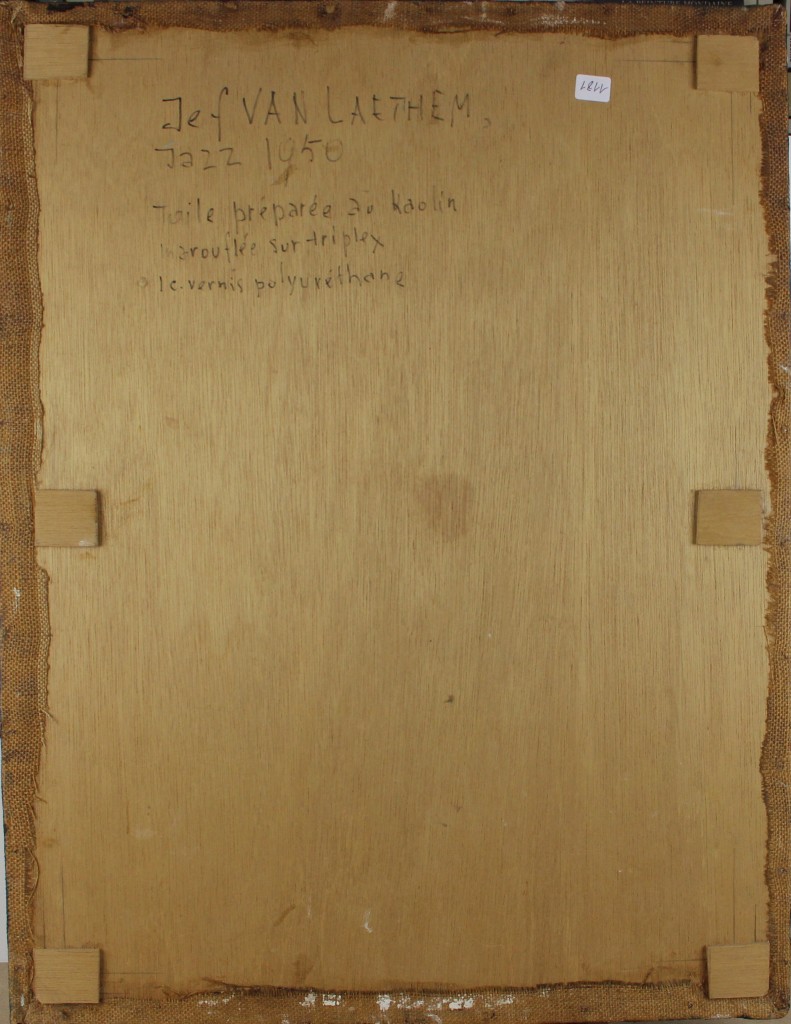 Jef VAN LAETHEM,
Jazz 1950
Toile préparée au kaolin
marouflée sur triplex
vernis polyuréthane